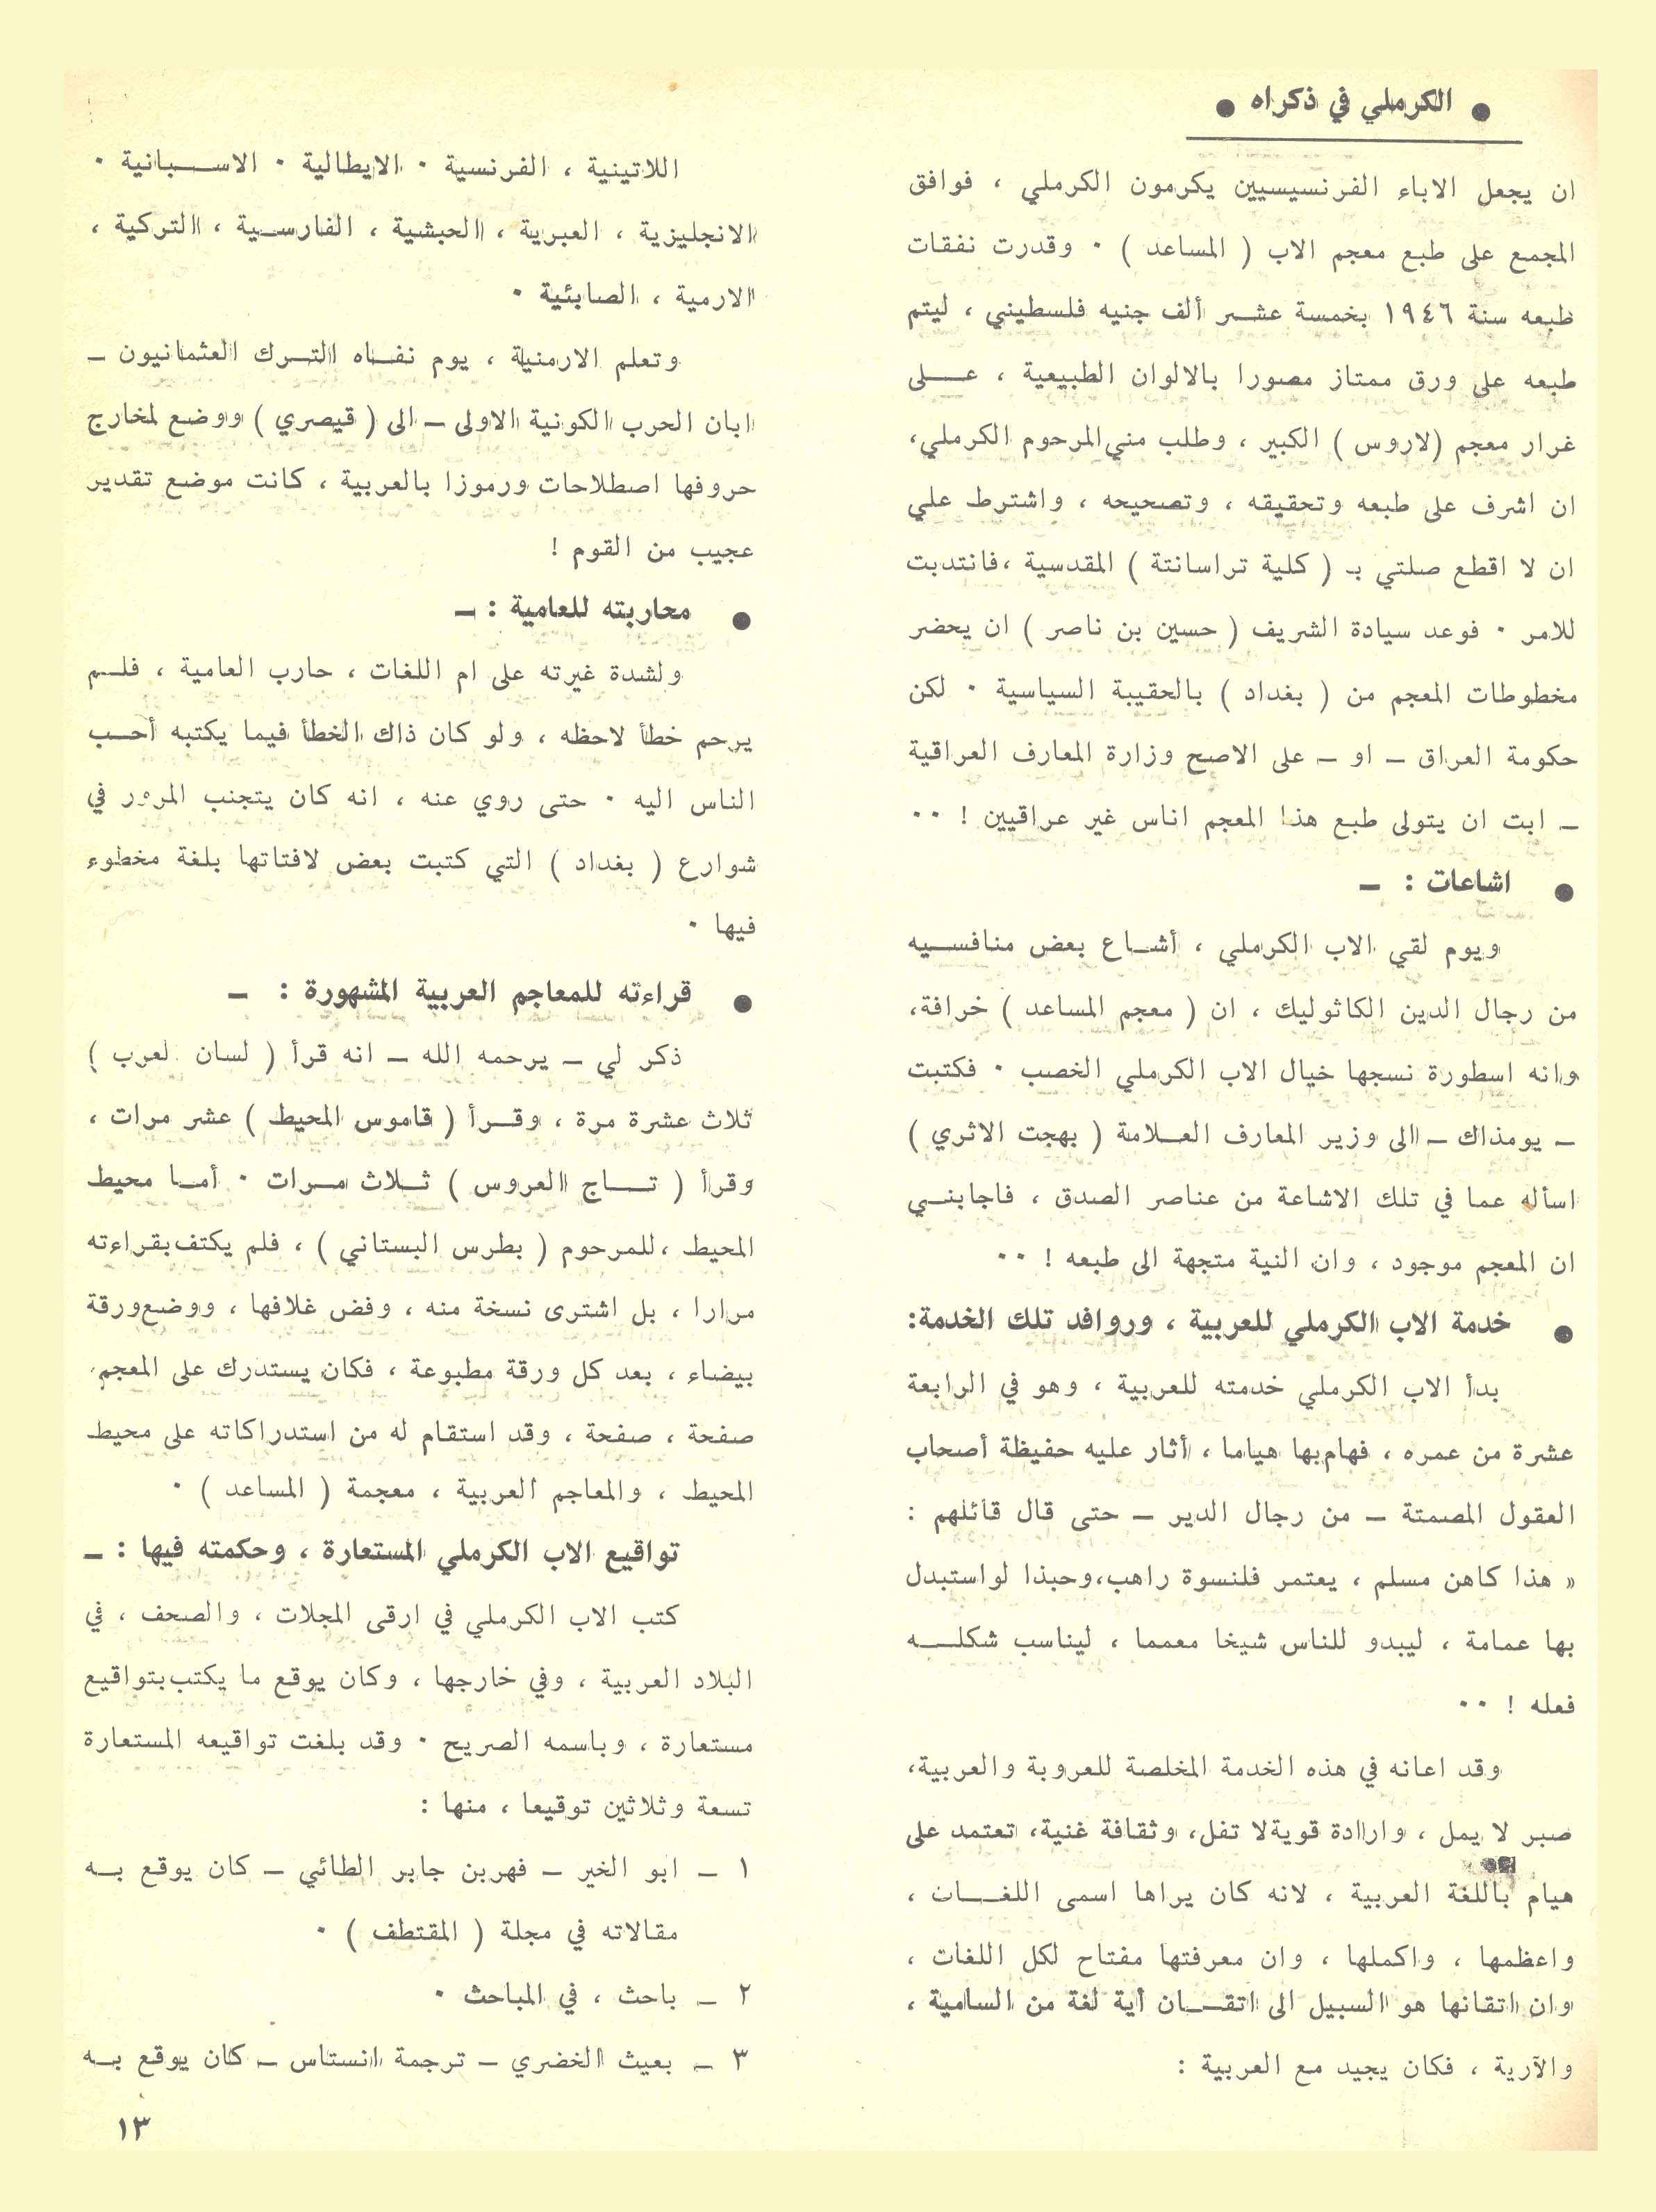 ● الكرملي في ذكراه ●
ان يجعل الاباء الفرنسيسيين يكرمون الكرملي ، فوافق
المجمع على طبع معجم الاب ( المساعد ) ٠ وقدرت نفقات
طبعه سنة ١٩٤٦ بخمسة عشر ألف جنيه فلسطيني ، ليتم
طبعه على ورق ممتاز مصورا بالالوان الطبيعية ، على
غرار معجم (لاروس ) الكبير ، وطلب مني المرحوم الكرملي،
ان اشرف على طبعه وتحقيقه ، وتصحيحه ، واشترط علي
ان لا اقطع صلتي بـ ( كلية تراسانتة ) المقدسية ،فانتدبت
للامر ٠ فوعد سيادة الشريف ( حسين بن ناصر ) ان يحضر
مخطوطات المعجم من ( بغداد ) بالحقيبة السياسية ٠ لكن
حكومة العراق – او – على الاصح وزارة المعارف العراقية
– ابت ان يتولى طبع هذا المعجم اناس غير عراقيين ! ٠٠
● اشاعات : –
ويوم لقي الاب الكرملي ، أشاع بعض منافسيه
من رجال الدين الكاثوليك ، ان ( معجم المساعد ) خرافة،
وانه اسطورة نسجها خيال الاب الكرملي الخصب ٠ فكتبت
– يومذاك – الى وزير المعارف العلامة ( بهجت الاثري )
اسأله عما في تلك الاشاعة من عناصر الصدق ، فاجابني
ان المعجم موجود ، وان النية متجهة الى طبعه ! ٠٠
● خدمة الاب الكرملي للعربية ، وروافد تلك الخدمة:
بدأ الاب الكرملي خدمته للعربية ، وهو في الرابعة
عشرة من عمره ، فهام بها هياما ، أثار عليه حفيظة أصحاب
العقول المصمتة – من رجال الدير – حتى قال قائلهم :
« هذا كاهن مسلم ، يعتمر قلنسوة راهب،وحبذا لو استبدل
بها عمامة ، ليبدو للناس شيخا معمما ، ليناسب شكله
فعله ! ٠٠
وقد اعانه في هذه الخدمة المخلصة للعروبة والعربية،
صبر لا يمل ، وارادة قوية لا تفل، وثقافة غنية، تعتمد على
هيام باللغة العربية ، لانه كان يراها اسمى اللغات ،
واعظمها ، واكملها ، وان معرفتها مفتاح لكل اللغات ،
وان اتقانها هو السبيل الى اتقان أية لغة من السامية ،
والآرية ، فكان يجيد مع العربية :
اللاتينية ، الفرنسية ٠ الايطالية ٠ الاسبانية ٠
الانجليزية ، العبرية ، الحبشية ، الفارسية ، التركية ،
الارمية ، الصابئية ٠
وتعلم الارمنية ، يوم نفاه الترك العثمانيون –
ابان الحرب الكونية الاولى – الى ( قيصري ) ووضع لمخارج
حروفها اصطلاحات ورموزا بالعربية ، كانت موضع تقدير
عجيب من القوم !
● محاربته للعامية : –
ولشدة غيرته على ام اللغات ، حارب العامية ، فلم
يرحم خطأ لاحظه ، ولو كان ذاك الخطأ فيما يكتبه أحب
الناس اليه ٠ حتى روي عنه ، انه كان يتجنب المرور في
شوارع ( بغداد ) التي كتبت بعض لافتاتها بلغة مخطوء
فيها ٠
● قراءته للمعاجم العربية المشهورة : –
ذكر لي – يرحمه الله – انه قرأ ( لسان لعرب )
ثلاث عشرة مرة ، وقرأ ( قاموس المحيط ) عشر مرات ،
وقرأ ( تاج العروس ) ثلاث مرات ٠ أما محيط
المحيط ،للمرحوم ( بطرس البستاني ) ، فلم يكتف بقراءته
مرارا ، بل اشترى نسخة منه ، وفض غلافها ، ووضع ورقة
بيضاء ، بعد كل ورقة مطبوعة ، فكان يستدرك على المعجم
صفحة ، صفحة ، وقد استقام له من استدراكاته على محيط
المحيط ، والمعاجم العربية ، معجمة ( المساعد ) ٠
تواقيع الاب الكرملي المستعارة ، وحكمته فيها : –
كتب الاب الكرملي في ارقى المجلات ، والصحف ، في
البلاد العربية ، وفي خارجها ، وكان يوقع ما يكتب بتواقيع
مستعارة ، وباسمه الصريح ٠ وقد بلغت تواقيعه المستعارة
تسعة وثلاثين توقيعا ، منها :
١ – ابو الخير – فهربن جابر الطائي – كان يوقع به
مقالاته في مجلة ( المقتطف ) ٠
٢ – باحث ، في المباحث ٠
٣ – بعيث الخضري – ترجمة انستاس – كان يوقع به
١٣